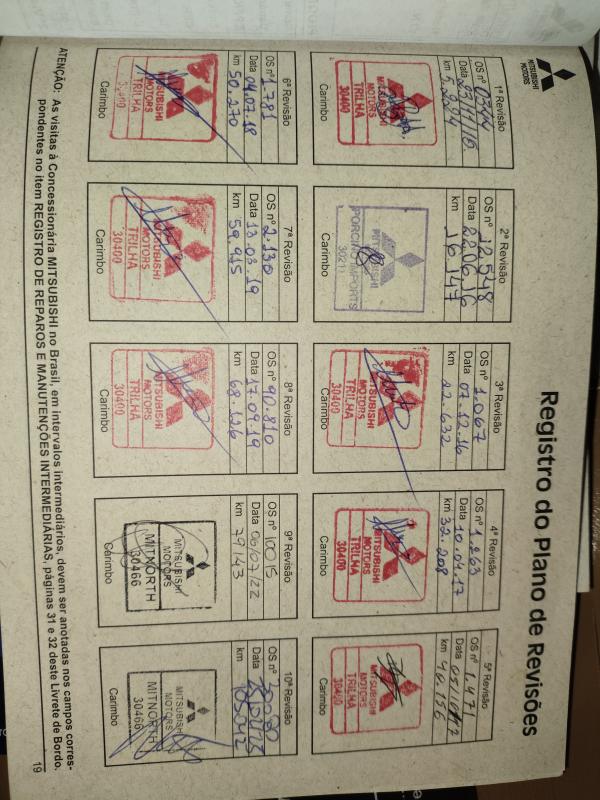 MITSUBISHI
MOTORS
Registro do Plano de Revisões
1ª Revisão
OS nº 0344
Data 23/11/16
km
Carimbo
MITSUBISHI
MOTORS
TRILHA
30400
2ª Revisão
OS nº 12.548
Data 22.06.16
km 16.147
Carimbo
MITSUBISHI
MOTORS
PORCINO IMPORTS
30211
3ª Revisão
OS nº 1.067
Data 07.12.16
km 22.632
Carimbo
MITSUBISHI
MOTORS
TRILHA
30400
4ª Revisão
OS nº 1.263
Data 10.04.17
km 32.208
Carimbo
MITSUBISHI
MOTORS
TRILHA
30400
5ª Revisão
OS nº 1.471
Data 05/10/17
km 40.156
Carimbo
MITSUBISHI
MOTORS
TRILHA
30400
6ª Revisão
OS nº 1.781
Data 04.07.18
km 50.270
Carimbo
MITSUBISHI
MOTORS
TRILHA
30400
7ª Revisão
OS nº 2.130
Data 13.03.19
km 58.915
Carimbo
MITSUBISHI
MOTORS
TRILHA
30400
8ª Revisão
OS nº 90.810
Data 17.09.19
km 68.126
Carimbo
MITSUBISHI
MOTORS
TRILHA
30400
9ª Revisão
OS nº 10015
Data 06/07/22
km 79143
Carimbo
MITSUBISHI
MOTORS
MITNORTH
30466
10ª Revisão
OS nº
Data
km 105042
Carimbo
MITSUBISHI
MOTORS
MITNORTH
30466
ATENÇÃO: As visitas à Concessionária MITSUBISHI no Brasil, em intervalos intermediários, devem ser anotadas nos campos corres-
pondentes no item REGISTRO DE REPAROS E MANUTENÇÕES INTERMEDIÁRIAS, páginas 31 e 32 deste Livrete de Bordo.
19